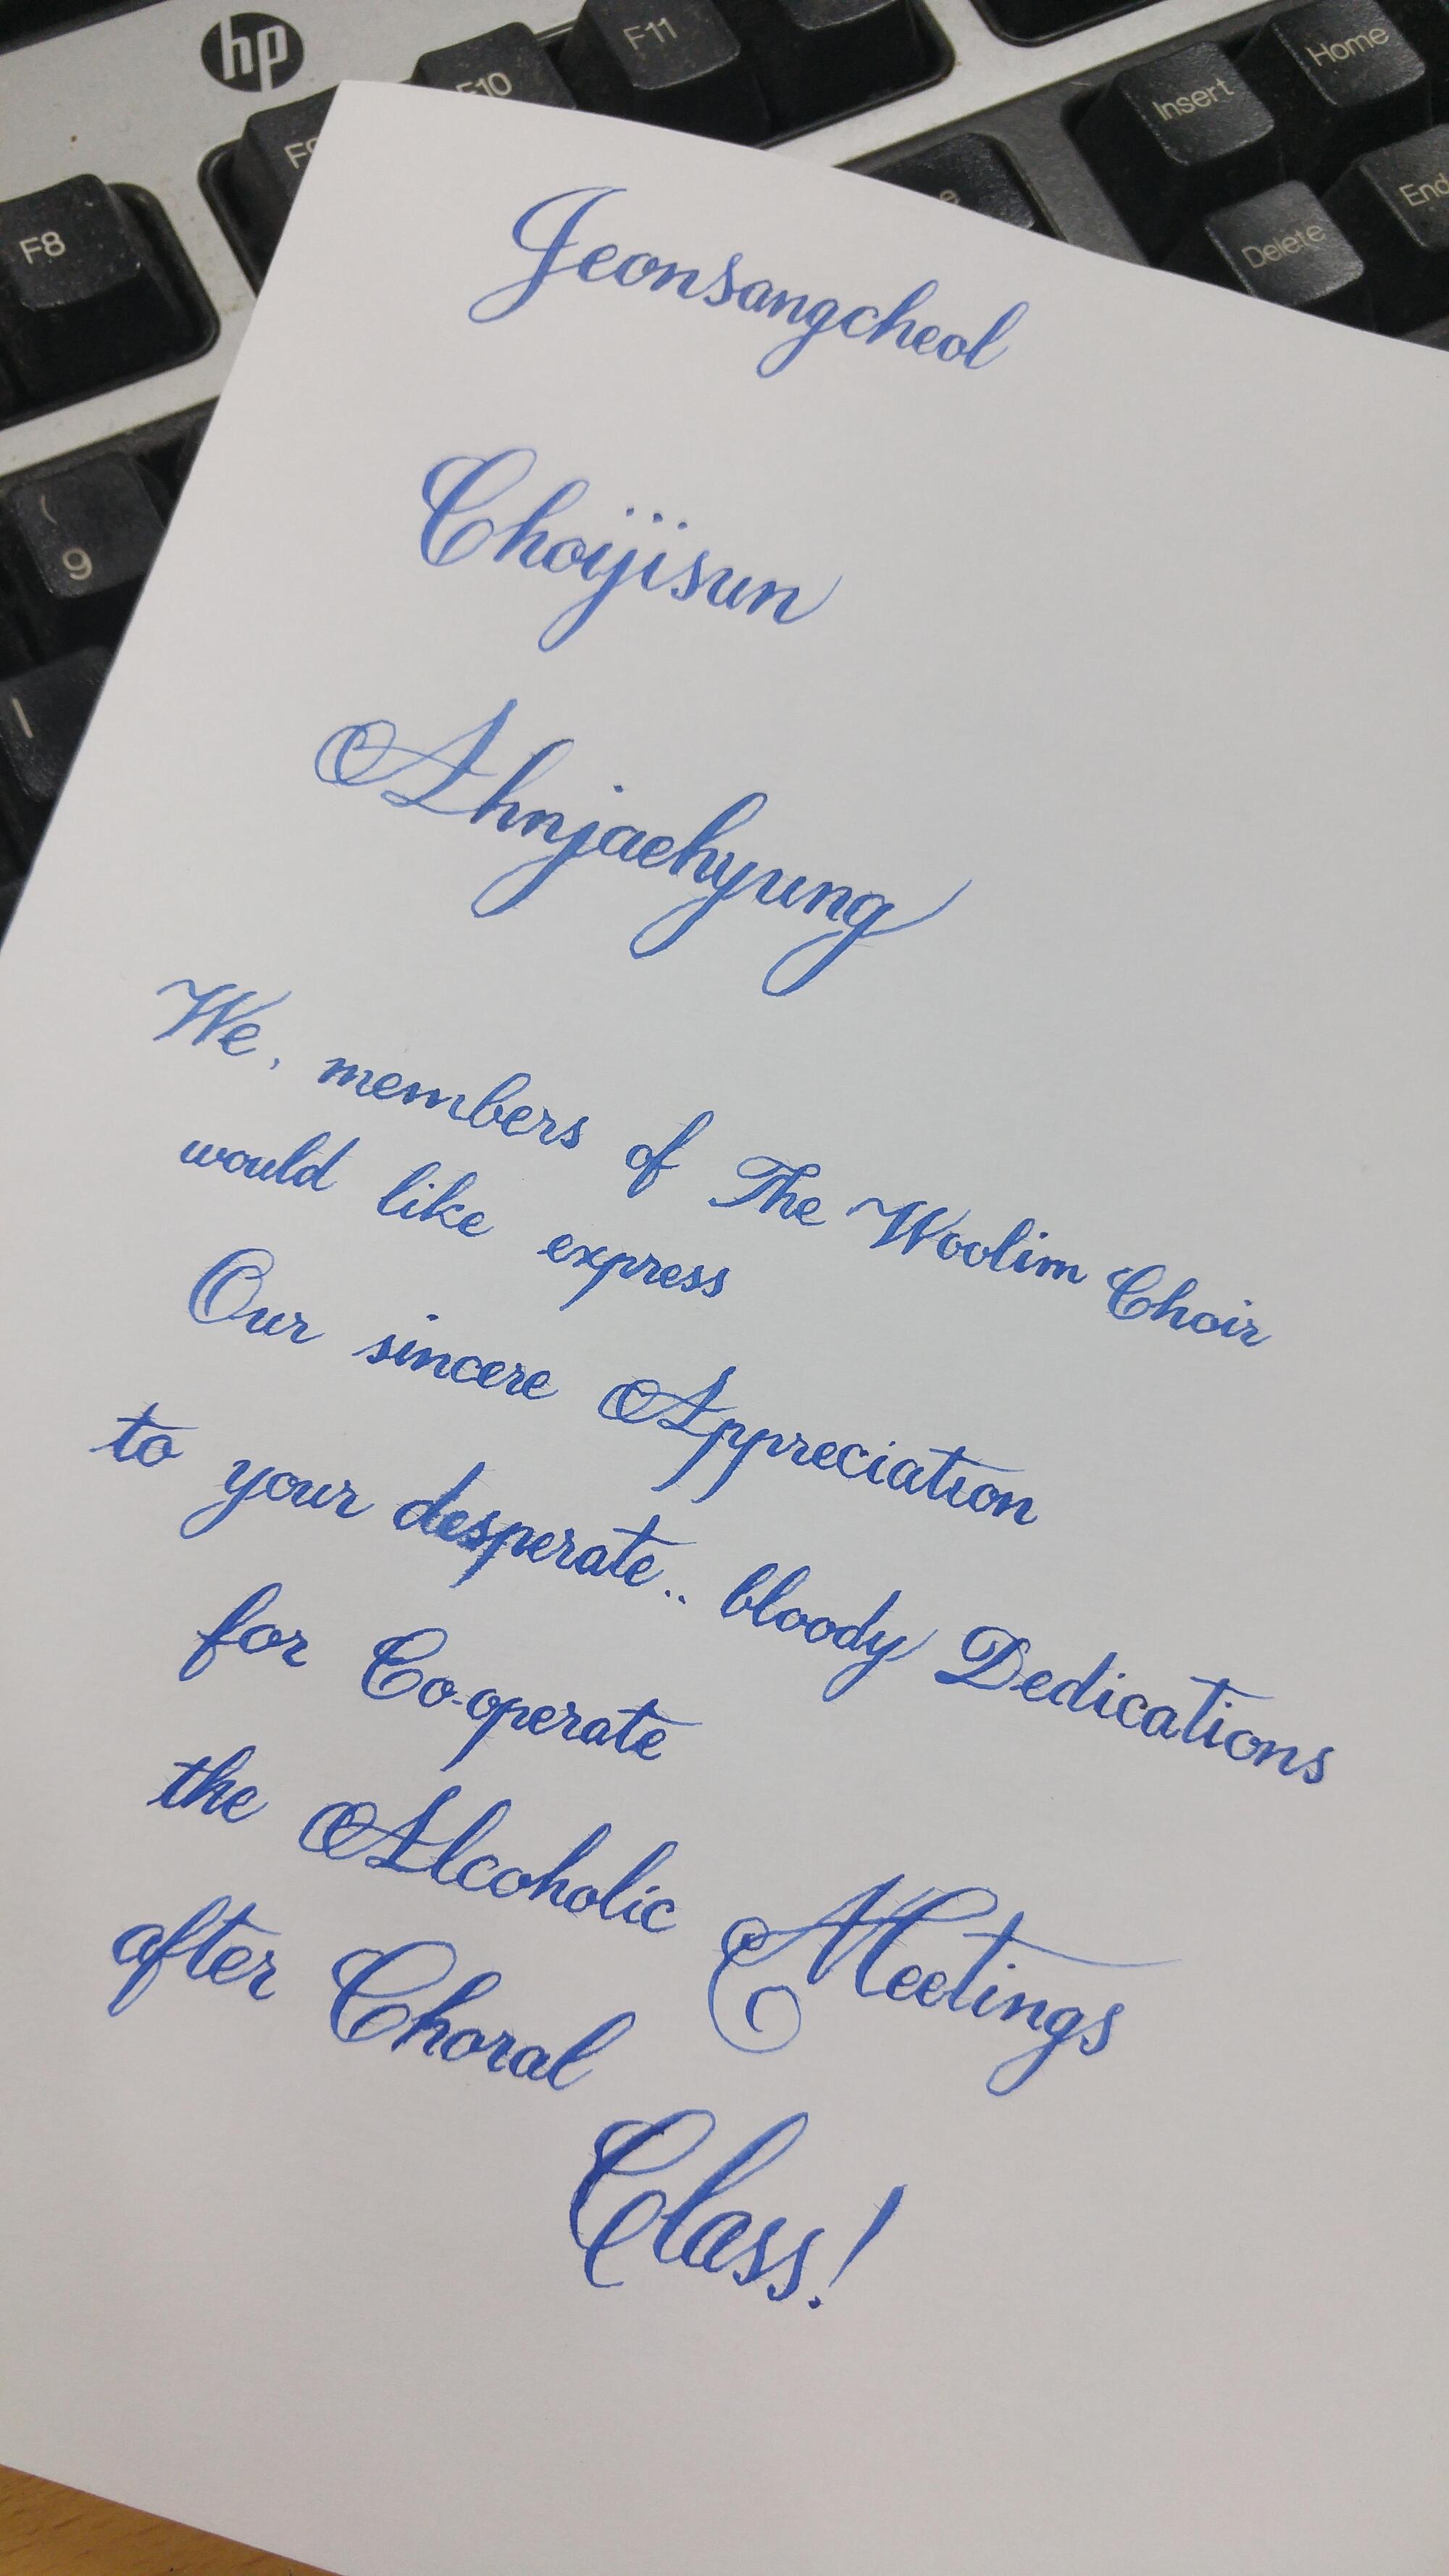 hp
F8
F9
F10
F11
Insert
Home
Delete
End
(
9
Jeonsangcheol
Choijisun
Ahnjaehyung
We, members of The Woolim Choir
would like express
Our sincere Appreciation
to your desperate.. bloody Dedications
for Co-operate
the Alcoholic Meetings
after Choral
Class!